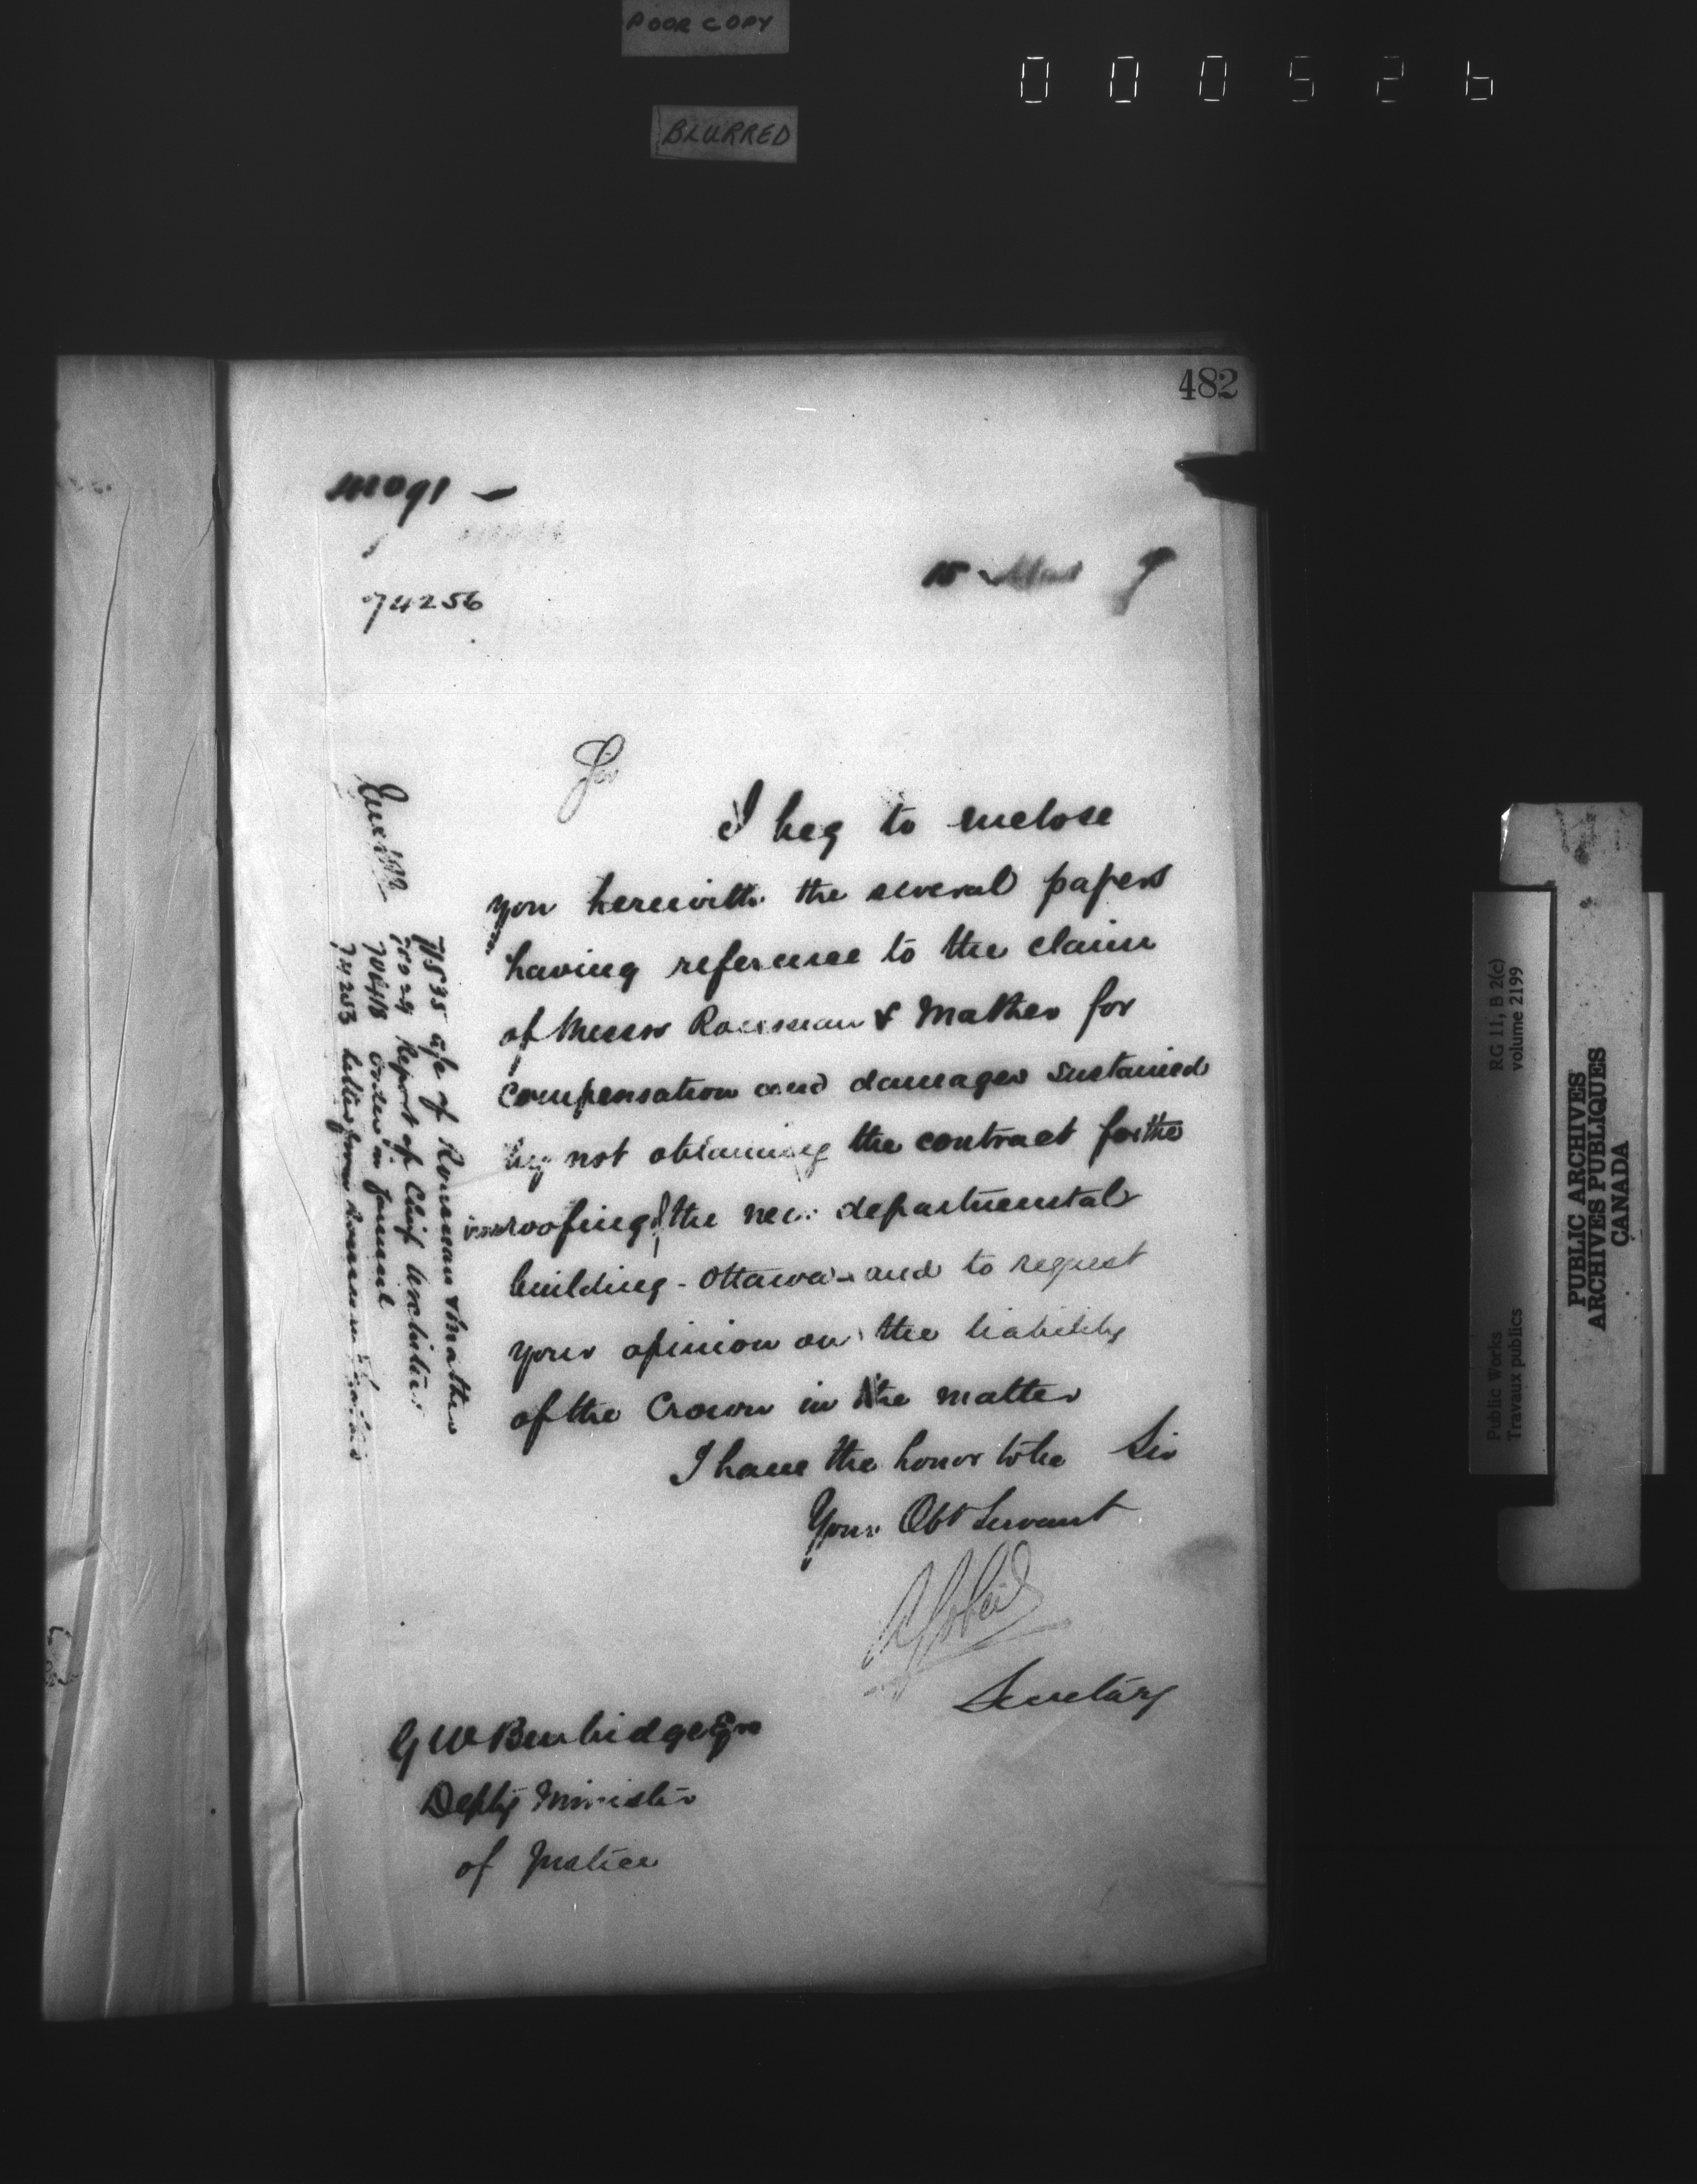 POOR COPY
BLURRED
000526
482
74256
15 Mar 7
Sir
I beg to enclose
you herewith the several papers
having reference to the claim
of Messrs Rousseau & Mather for
compensation and damages sustained
by not obtaining the contract for the
iron roofing of the new departmental
building - Ottawa - and to request
your opinion on the liability
of the Crown in the matter
I have the honor to be Sir
Your Obt Servant
A Gobeil
Secretary
G W Burbidge Esqr
Depty Minister
of Justice
71535 of Rousseau & Mather
Report of Chief Architect
order in Council
74253 letter from Rousseau
RG 11, B 2(c)
volume 2199
Public Works
Travaux publics
PUBLIC ARCHIVES
ARCHIVES PUBLIQUES
CANADA